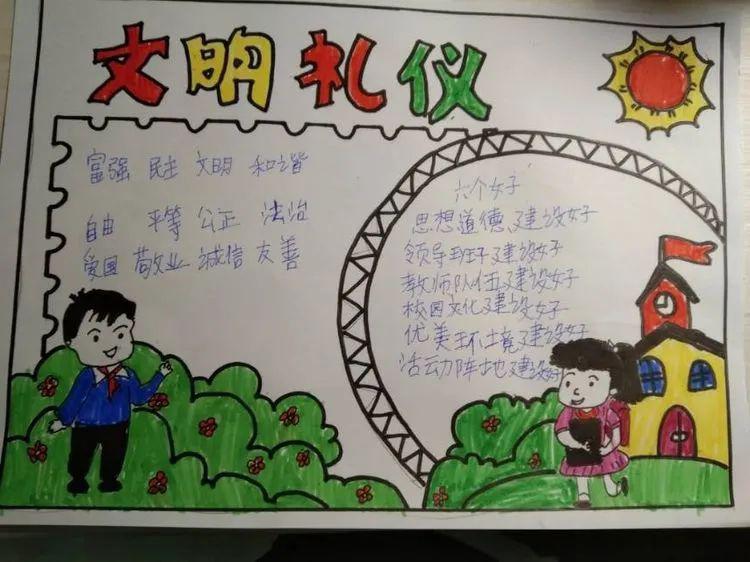 文明礼仪
富强 民主 文明 和谐
自由 平等 公正 法治
爱国 敬业 诚信 友善
六个好
思想道德建设好
领导班子建设好
教师队伍建设好
校园文化建设好
优美环境建设好
活动阵地建设好